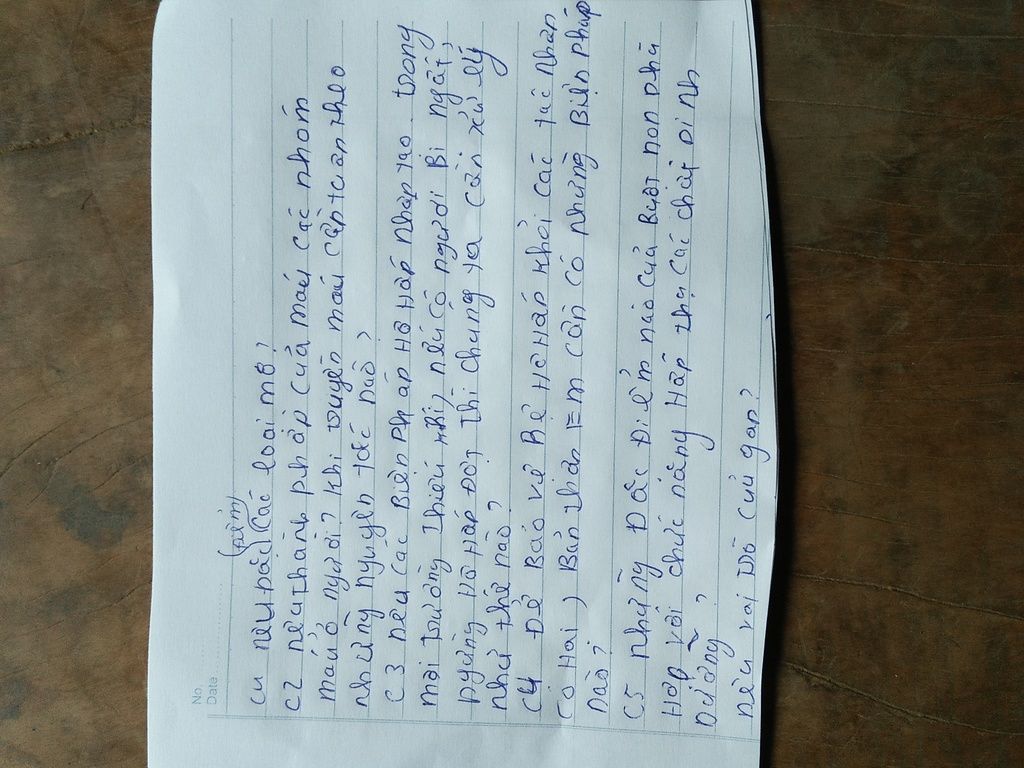 No.
Date
(điểm)
C1 nêu đặc các loại mô?
C2 nêu thành phần của máu các nhóm
máu ở người? khi truyền máu cần tuân theo
những nguyên tắc nào?
C3 nêu các Biện Pháp Hô Hấp nhân tạo. trong
môi trường thiếu khí, nếu có người Bị ngất,
ngừng Hô Hấp Đột thì chúng ta cần xử lý
như thế nào?
C4 Để Bảo vệ Hệ Hô Hấp khỏi các tác nhân
có Hại, Bản thân Em cần có những Biện Pháp
nào?
C5 những Đặc Điểm nào của Ruột non phù
Hợp với chức năng Hấp thụ các chất Dinh
Dưỡng?
nêu vai trò của gan?